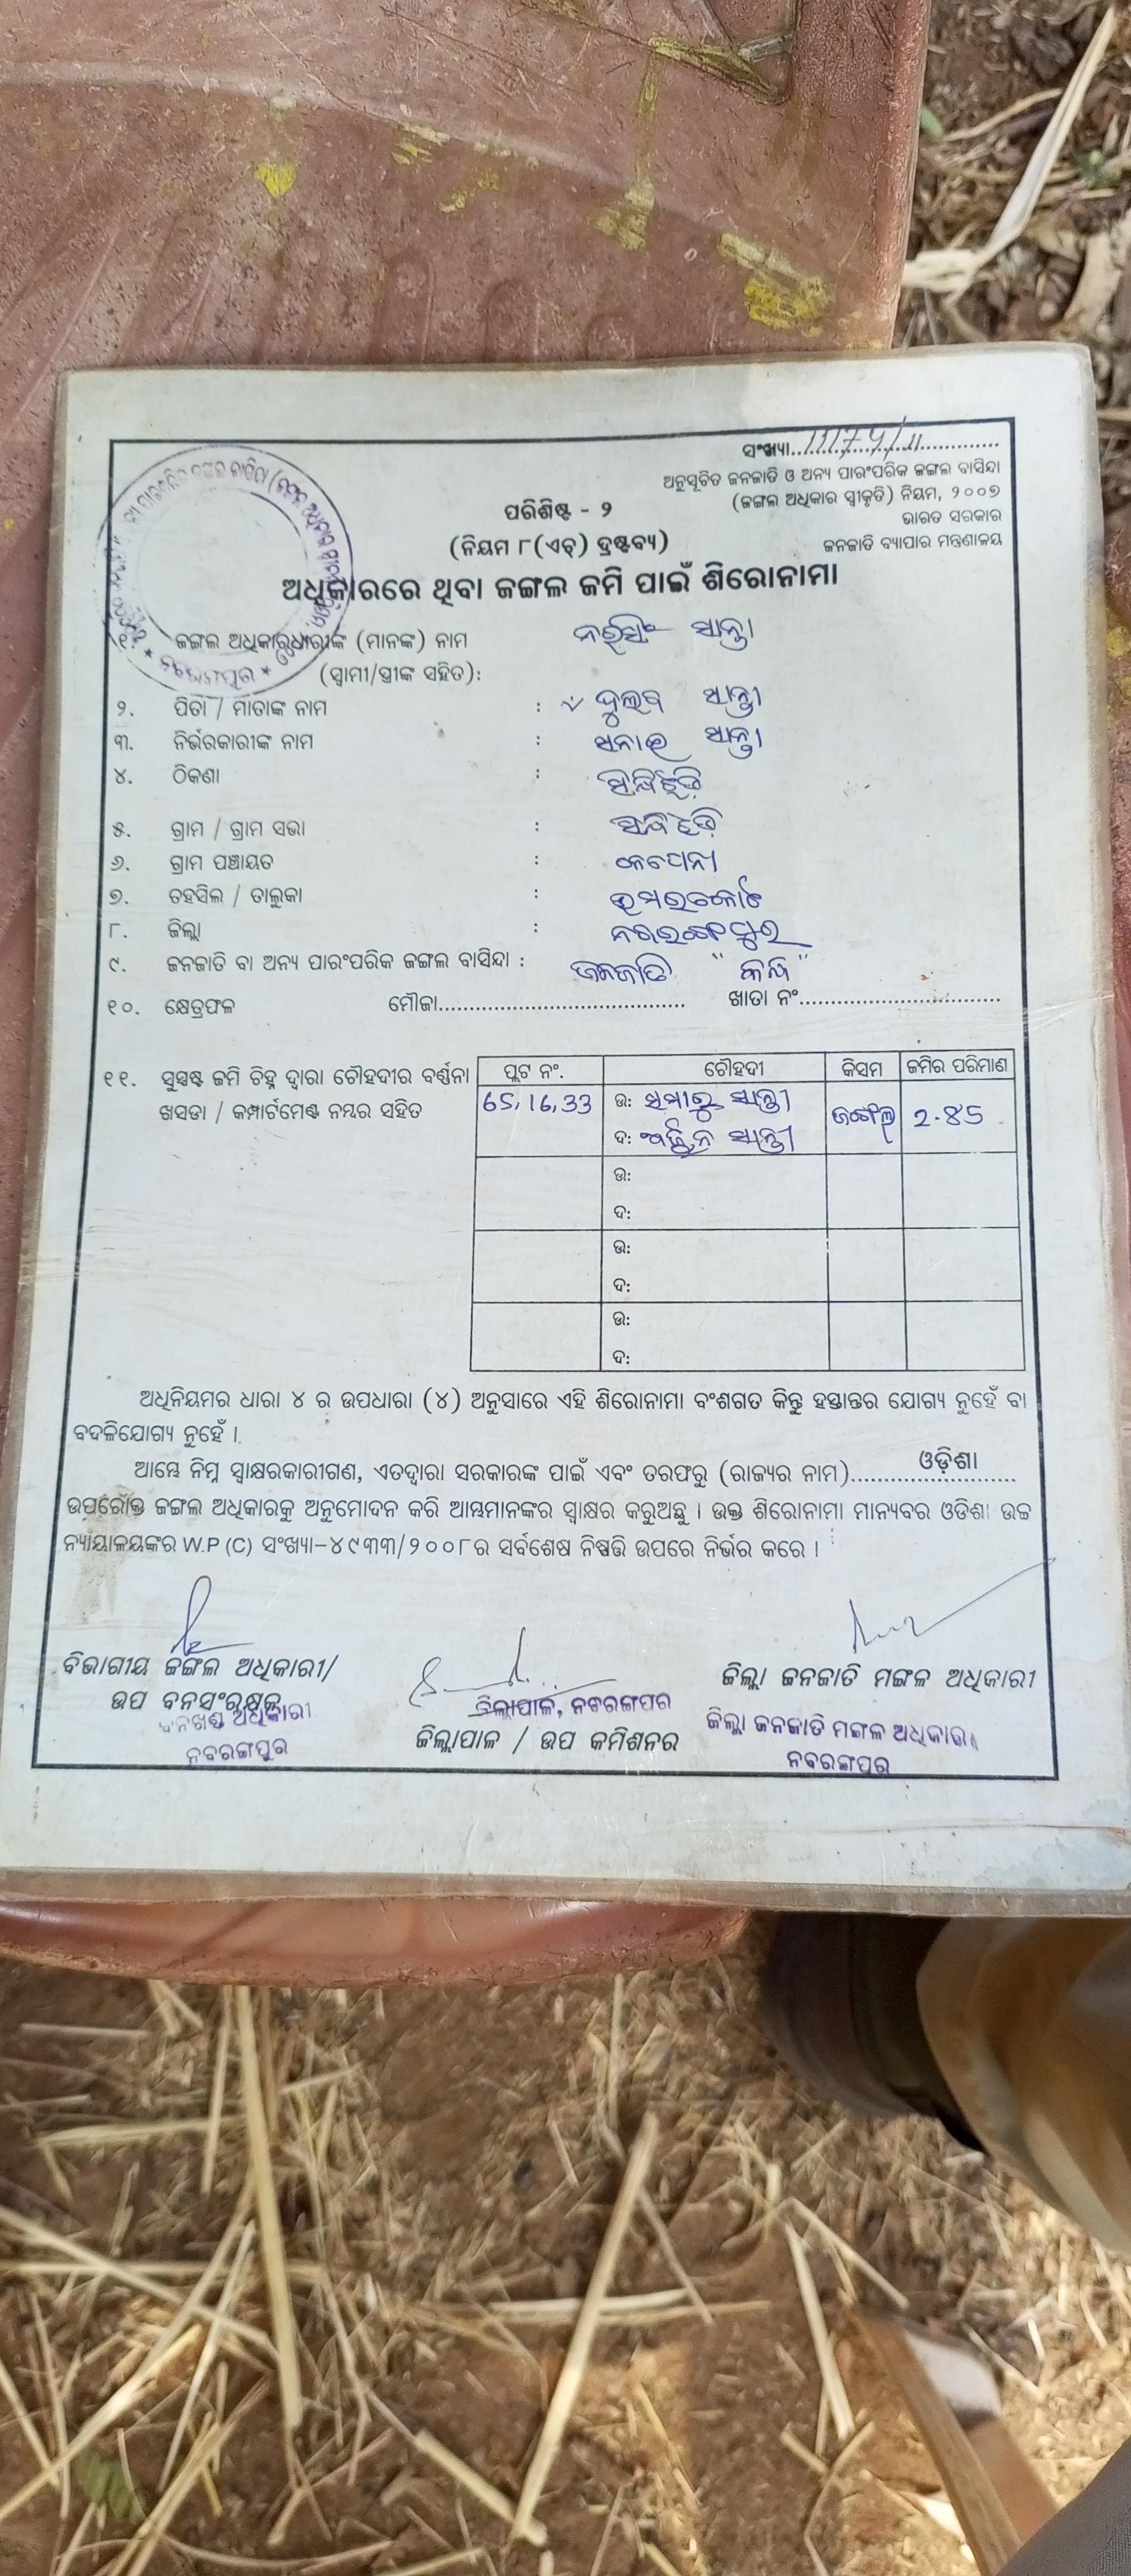 ସଂଖ୍ୟା..11174/11............
ଅନୁସୂଚିତ ଜନଜାତି ଓ ଅନ୍ୟ ପାରଂପରିକ ଜଙ୍ଗଲ ବାସିନ୍ଦା
(ଜଙ୍ଗଲ ଅଧିକାର ସ୍ୱୀକୃତି) ନିୟମ, ୨୦୦୭
ଭାରତ ସରକାର
ଜନଜାତି ବ୍ୟାପାର ମନ୍ତ୍ରଣାଳୟ
ପରିଶିଷ୍ଟ - ୨
(ନିୟମ ୮(ଏଚ୍) ଦ୍ରଷ୍ଟବ୍ୟ)
ଅଧିକାରରେ ଥିବା ଜଙ୍ଗଲ ଜମି ପାଇଁ ଶିରୋନାମା
୧. ଜଙ୍ଗଲ ଅଧିକାରଧାରୀଙ୍କ (ମାନଙ୍କ) ନାମ ନରସିଂ ସାନ୍ତା
(ସ୍ୱାମୀ/ସ୍ତ୍ରୀଙ୍କ ସହିତ):
୨. ପିତା / ମାତାଙ୍କ ନାମ : ଦୁଲବ ସାନ୍ତା
୩. ନିର୍ଭରକାରୀଙ୍କ ନାମ : ସନାଇ ସାନ୍ତା
୪. ଠିକଣା :
୫. ଗ୍ରାମ / ଗ୍ରାମ ସଭା :
୬. ଗ୍ରାମ ପଞ୍ଚାୟତ :
୭. ତହସିଲ / ତାଲୁକା : ଉମରକୋଟ
୮. ଜିଲ୍ଲା : ନବରଙ୍ଗପୁର
୯. ଜନଜାତି ବା ଅନ୍ୟ ପାରଂପରିକ ଜଙ୍ଗଲ ବାସିନ୍ଦା : ଜନଜାତି "କନ୍ଧ"
୧୦. କ୍ଷେତ୍ରଫଳ ମୌଜା.................... ଖାତା ନଂ....................
୧୧. ସୁସ୍ପଷ୍ଟ ଜମି ଚିହ୍ନ ଦ୍ୱାରା ଚୌହଦୀର ବର୍ଣ୍ଣନା
ଖସଡା / କମ୍ପାର୍ଟମେଣ୍ଟ ନମ୍ବର ସହିତ
ପ୍ଲଟ ନଂ. ଚୌହଦୀ କିସମ ଜମିର ପରିମାଣ
65,16,33 ଉ: ସମାରୁ ସାନ୍ତା ଜଙ୍ଗଲ 2.85
ଦ: ସାନ୍ତା
ଉ:
ଦ:
ଉ:
ଦ:
ଉ:
ଦ:
ଅଧିନିୟମର ଧାରା ୪ ର ଉପଧାରା (୪) ଅନୁସାରେ ଏହି ଶିରୋନାମା ବଂଶଗତ କିନ୍ତୁ ହସ୍ତାନ୍ତର ଯୋଗ୍ୟ ନୁହେଁ ବା
ବଦଳିଯୋଗ୍ୟ ନୁହେଁ ।
ଆମ୍ଭେ ନିମ୍ନ ସ୍ୱାକ୍ଷରକାରୀଗଣ, ଏତଦ୍ୱାରା ସରକାରଙ୍କ ପାଇଁ ଏବଂ ତରଫରୁ (ରାଜ୍ୟର ନାମ)........ଓଡ଼ିଶା........
ଉପରୋକ୍ତ ଜଙ୍ଗଲ ଅଧିକାରକୁ ଅନୁମୋଦନ କରି ଆମ୍ଭମାନଙ୍କର ସ୍ୱାକ୍ଷର କରୁଅଛୁ । ଉକ୍ତ ଶିରୋନାମା ମାନ୍ୟବର ଓଡିଶା ଉଚ୍ଚ
ନ୍ୟାୟାଳୟଙ୍କର W.P (C) ସଂଖ୍ୟା-୪୯୩୩/୨୦୦୮ର ସର୍ବଶେଷ ନିଷ୍ପତ୍ତି ଉପରେ ନିର୍ଭର କରେ ।
ବିଭାଗୀୟ ଜଙ୍ଗଲ ଅଧିକାରୀ/
ଉପ ବନସଂରକ୍ଷକ
ବନଖଣ୍ଡ ଅଧିକାରୀ
ନବରଙ୍ଗପୁର
ଜିଲ୍ଲାପାଳ, ନବରଙ୍ଗପୁର
ଜିଲ୍ଲାପାଳ / ଉପ କମିଶନର
ଜିଲ୍ଲା ଜନଜାତି ମଙ୍ଗଳ ଅଧିକାରୀ
ଜିଲ୍ଲା ଜନଜାତି ମଙ୍ଗଳ ଅଧିକାରୀ
ନବରଙ୍ଗପୁର